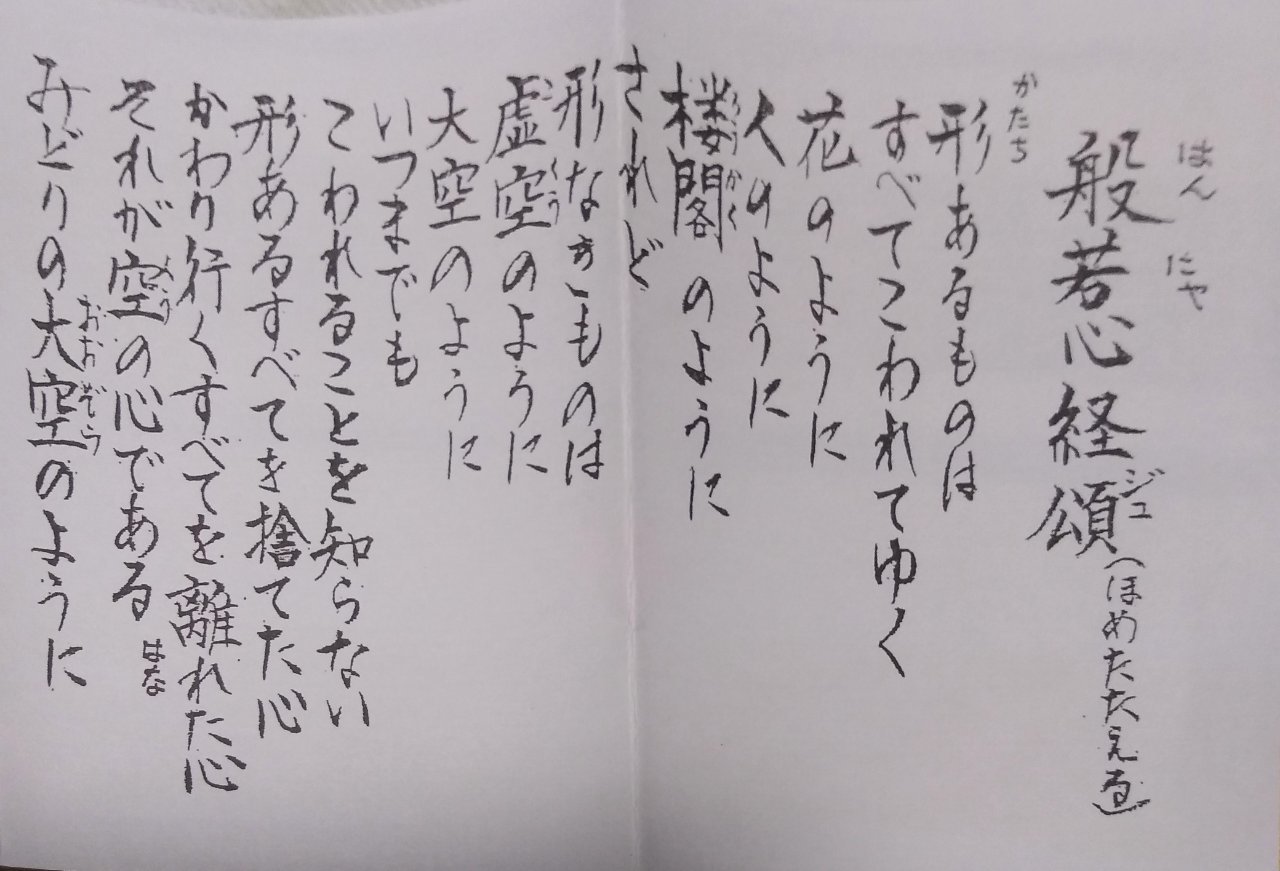 般若心経頌(ほめたたえる)
はん にゃ
ジュ
かたち
形あるものは
すべてこわれてゆく
花のように
人のように
楼閣のように
ろうかく
されど
形なきものは
虚空のように
こくう
大空のように
いつまでも
こわれることを知らない
形あるすべてを捨てた心
かわり行くすべてを離れた心
はな
それが空の心である
くう
みどりの大空のように
おおぞら